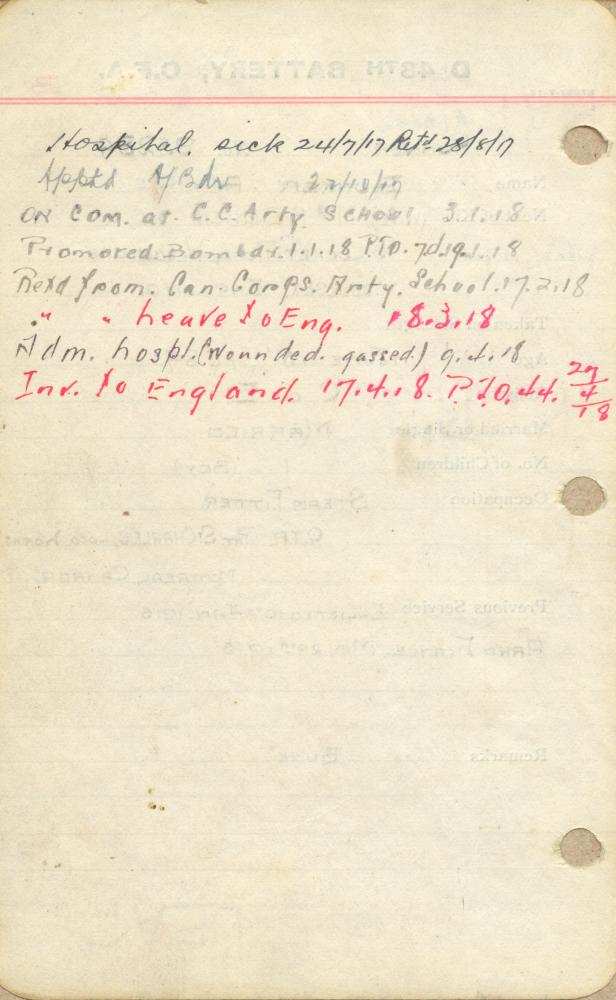 Hospital. sick 24/7/17 Retd 28/8/17
Apptd A/Bdr 22/10/17
On Com. at. C.C. Arty School 3.1.18
Promoted. Bombdr. 1.1.18 P.T.O. 7d 19.1.18
Retd from. Can. Corps. Arty. School. 17.2.18
" " Leave to Eng. 8.3.18
Adm. hospl. (Wounded. gassed.) 9.4.18
Inv. to England. 17.4.18. P.T.O. 44. 29/4/18